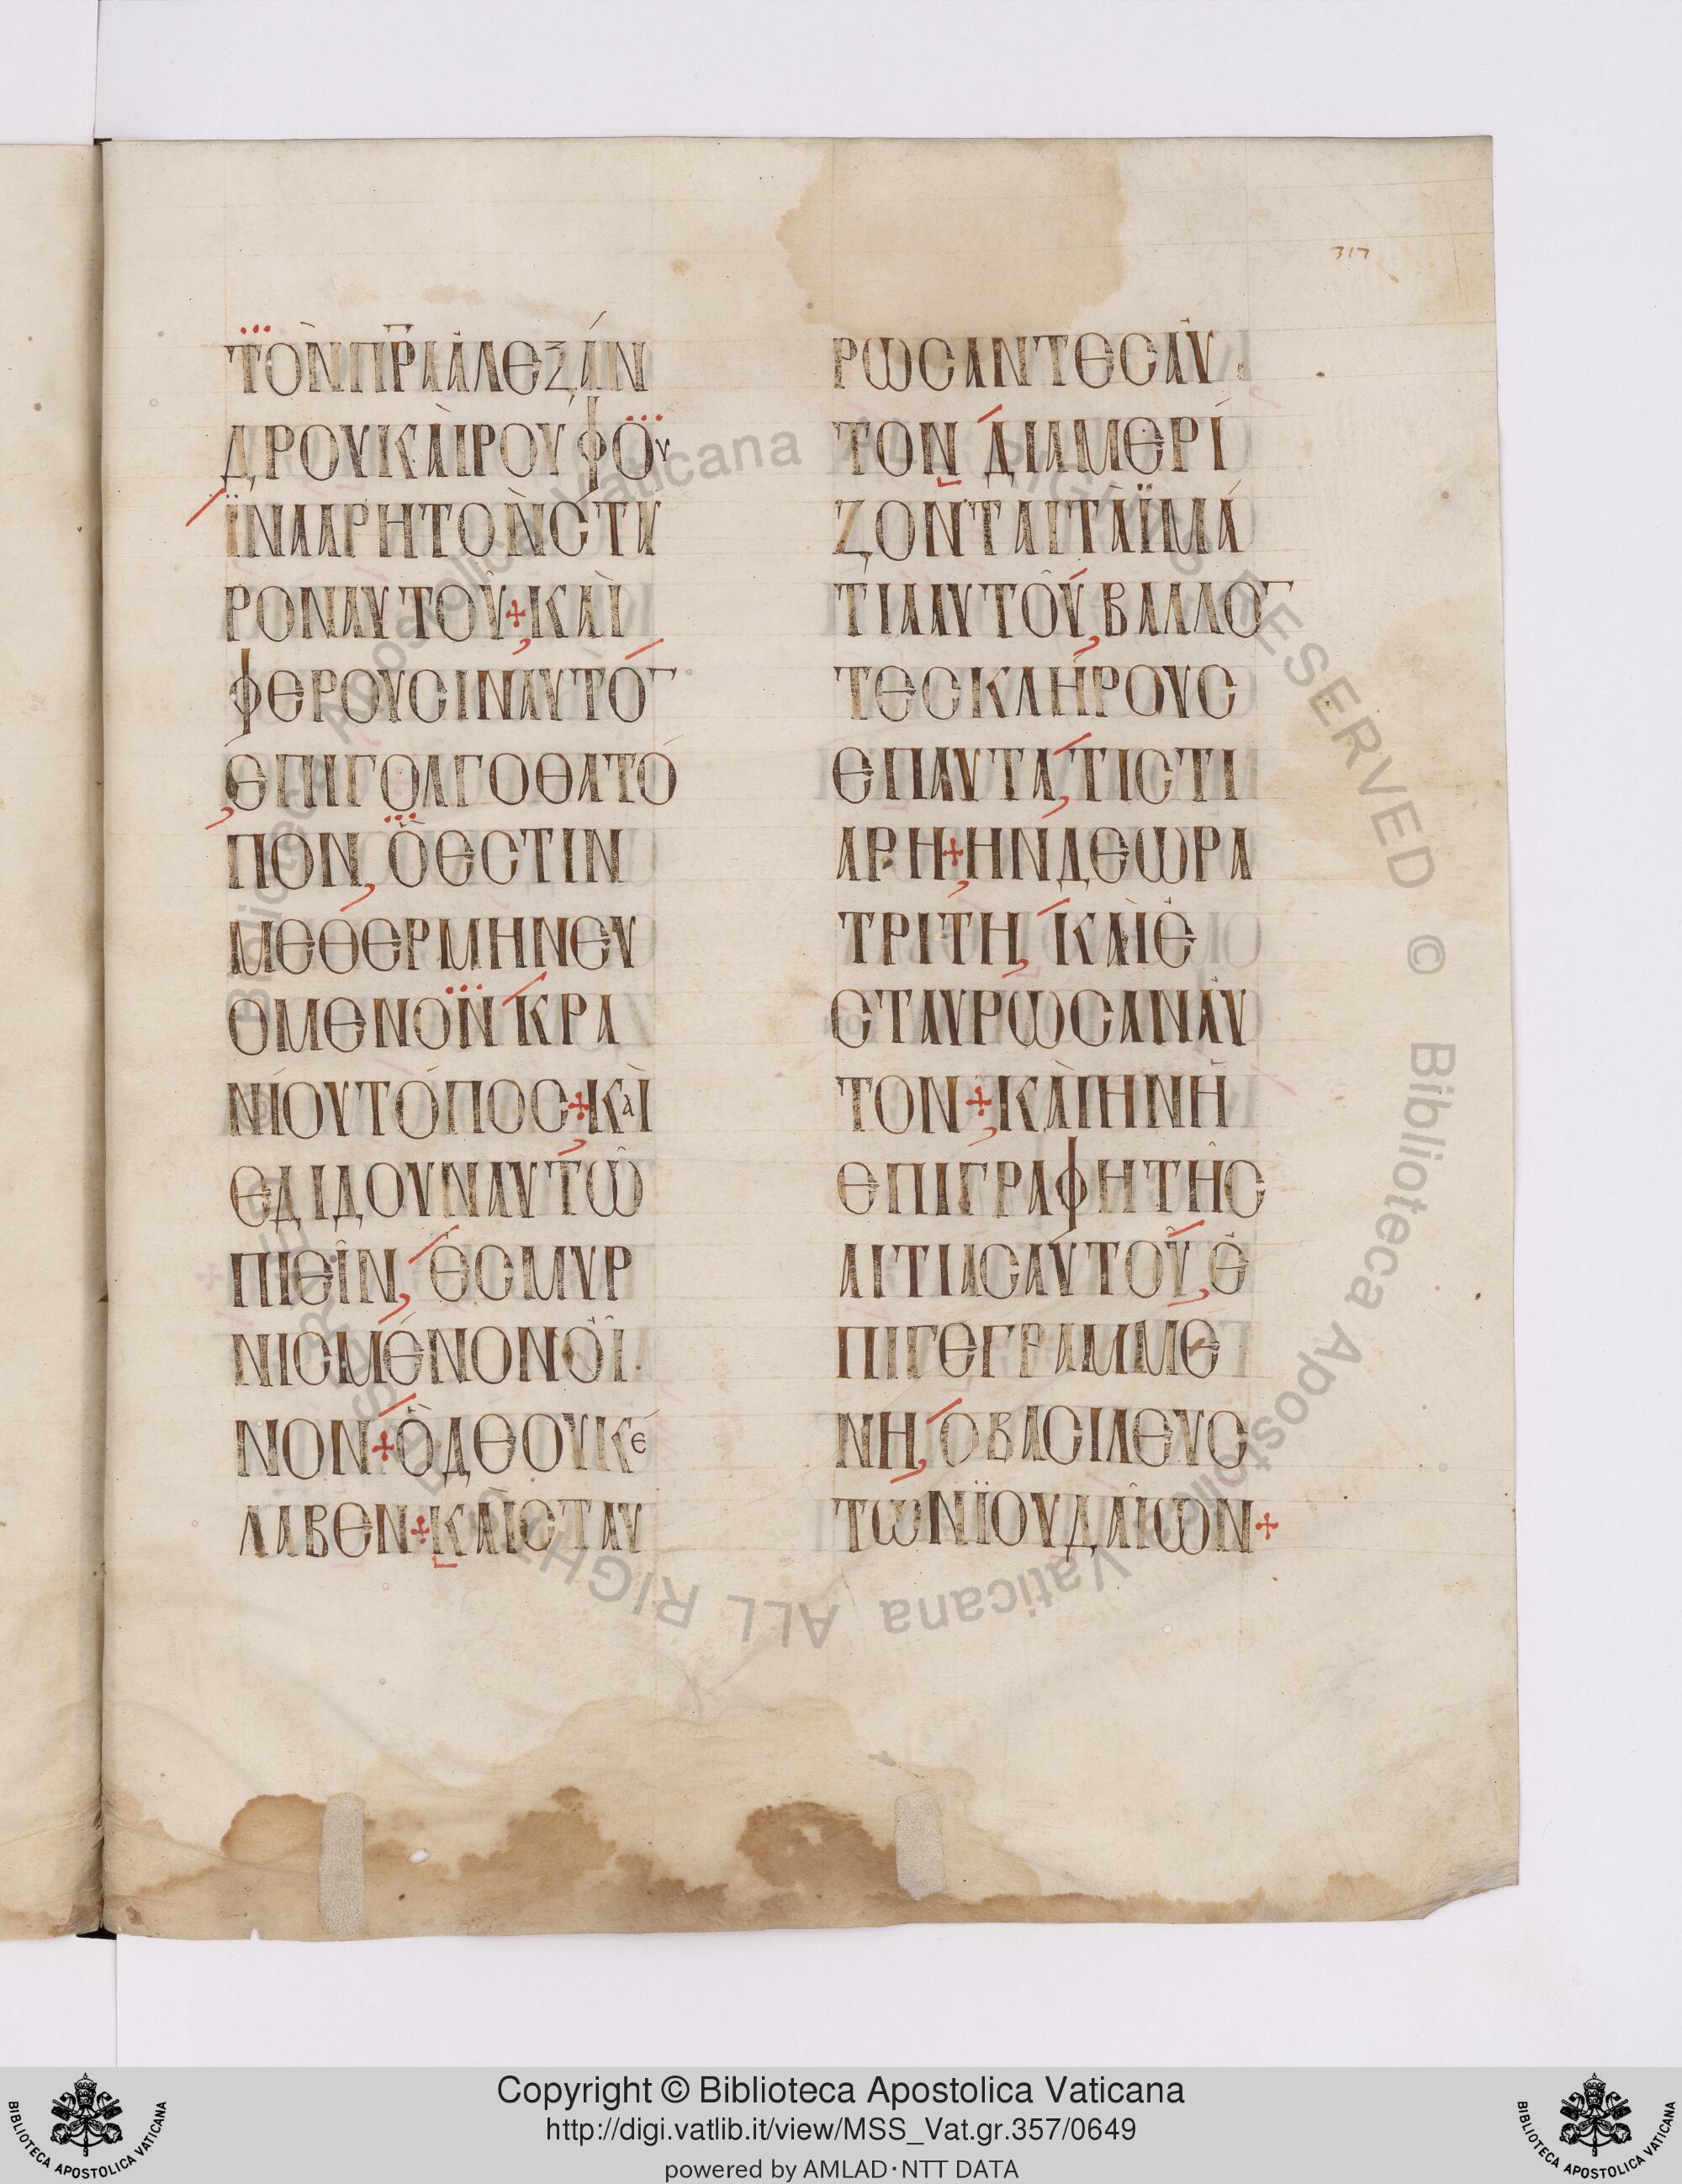 317
ΤΟΝΠΡΑΑΛΕΞΑΝ
ΔΡΟΥΚΑΙΡΟΥΦΟΥ
ΪΝΑΑΡΗΤΟΝΣΤΑΥ
ΡΟΝΑΥΤΟΥ+ΚΑΙ
ΦΕΡΟΥΣΙΝΑΥΤΟ̅
ΕΠΙΓΟΛΓΟΘΑΤΟ
ΠΟΝ, ΟΕΣΤΙΝ
ΜΕΘΕΡΜΗΝΕΥ
ΟΜΕΝΟΝ ΚΡΑ
ΝΙΟΥΤΟΠΟΣ+ΚΑΙ
ΕΔΙΔΟΥΝΑΥΤΩ
ΠΙΕΙΝ, ΕΣΜΥΡ
ΝΙΣΜΕΝΟΝΟΙ
ΝΟΝ+ΟΔΕΟΥΚΕ
ΛΑΒΕΝ+ΚΑΙΣΤΑΥ
ΡΩΣΑΝΤΕΣΑΥ
ΤΟΝ ΔΙΑΜΕΡΙ
ΖΟΝΤΑΙΤΑΪΜΑ
ΤΙΑΑΥΤΟΥ, ΒΑΛΛΟ̅
ΤΕΣΚΛΗΡΟΥΣ
ΕΠΑΥΤΑ, ΤΙΣΤΙ
ΑΡΗ+ΗΝΔΕΩΡΑ
ΤΡΙΤΗ, ΚΑΙΕ
ΣΤΑΥΡΩΣΑΝΑΥ
ΤΟΝ+ΚΑΙΗΝΗ
ΕΠΙΓΡΑΦΗΤΗΣ
ΑΙΤΙΑΣΑΥΤΟΥ, Ε
ΠΙΓΕΓΡΑΜΜΕ
ΝΗ, ΟΒΑΣΙΛΕΥΣ
ΤΩΝΪΟΥΔΑΙΩΝ+
Biblioteca Apostolica Vaticana ALL RIGHTS RESERVED © Biblioteca Apostolica Vaticana ALL RIGHTS RESERVED ©
Copyright © Biblioteca Apostolica Vaticana
http://digi.vatlib.it/view/MSS_Vat.gr.357/0649
powered by AMLAD·NTT DATA
BIBLIOTECA APOSTOLICA VATICANA
BIBLIOTECA APOSTOLICA VATICANA